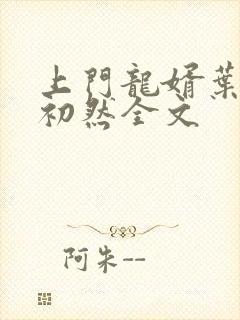 上門龍婿葉
初然全文
阿朱--